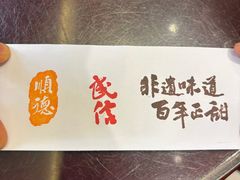 順德
成信
非遺味道
百年正甜